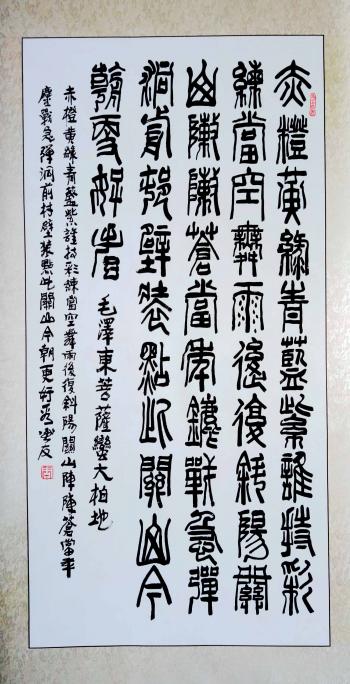 赤橙黄綠青藍紫誰持彩
練當空舞雨後復斜陽關
山陣陣蒼當年鏖戰急彈
洞前村壁裝點此關山今
朝更好看 毛澤東菩薩蠻大柏地
赤橙黄綠青藍紫誰持彩練當空舞雨後復斜陽關山陣陣蒼當年
鏖戰急彈洞前村壁裝點此關山今朝更好看